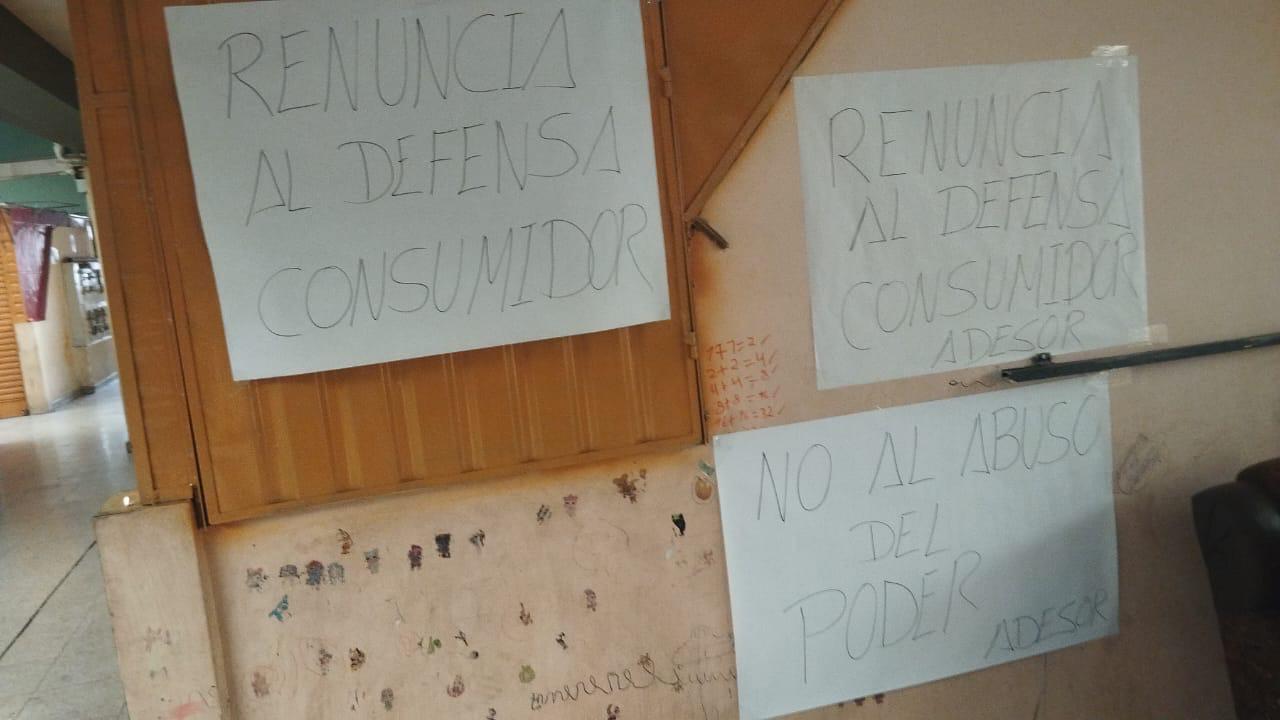 RENUNCIA
AL DEFENSA
CONSUMIDOR
RENUNCIA
AL DEFENSA
CONSUMIDOR
ADESOR
2+2=4
4+4=8
NO AL ABUSO
DEL
PODER
ADESOR